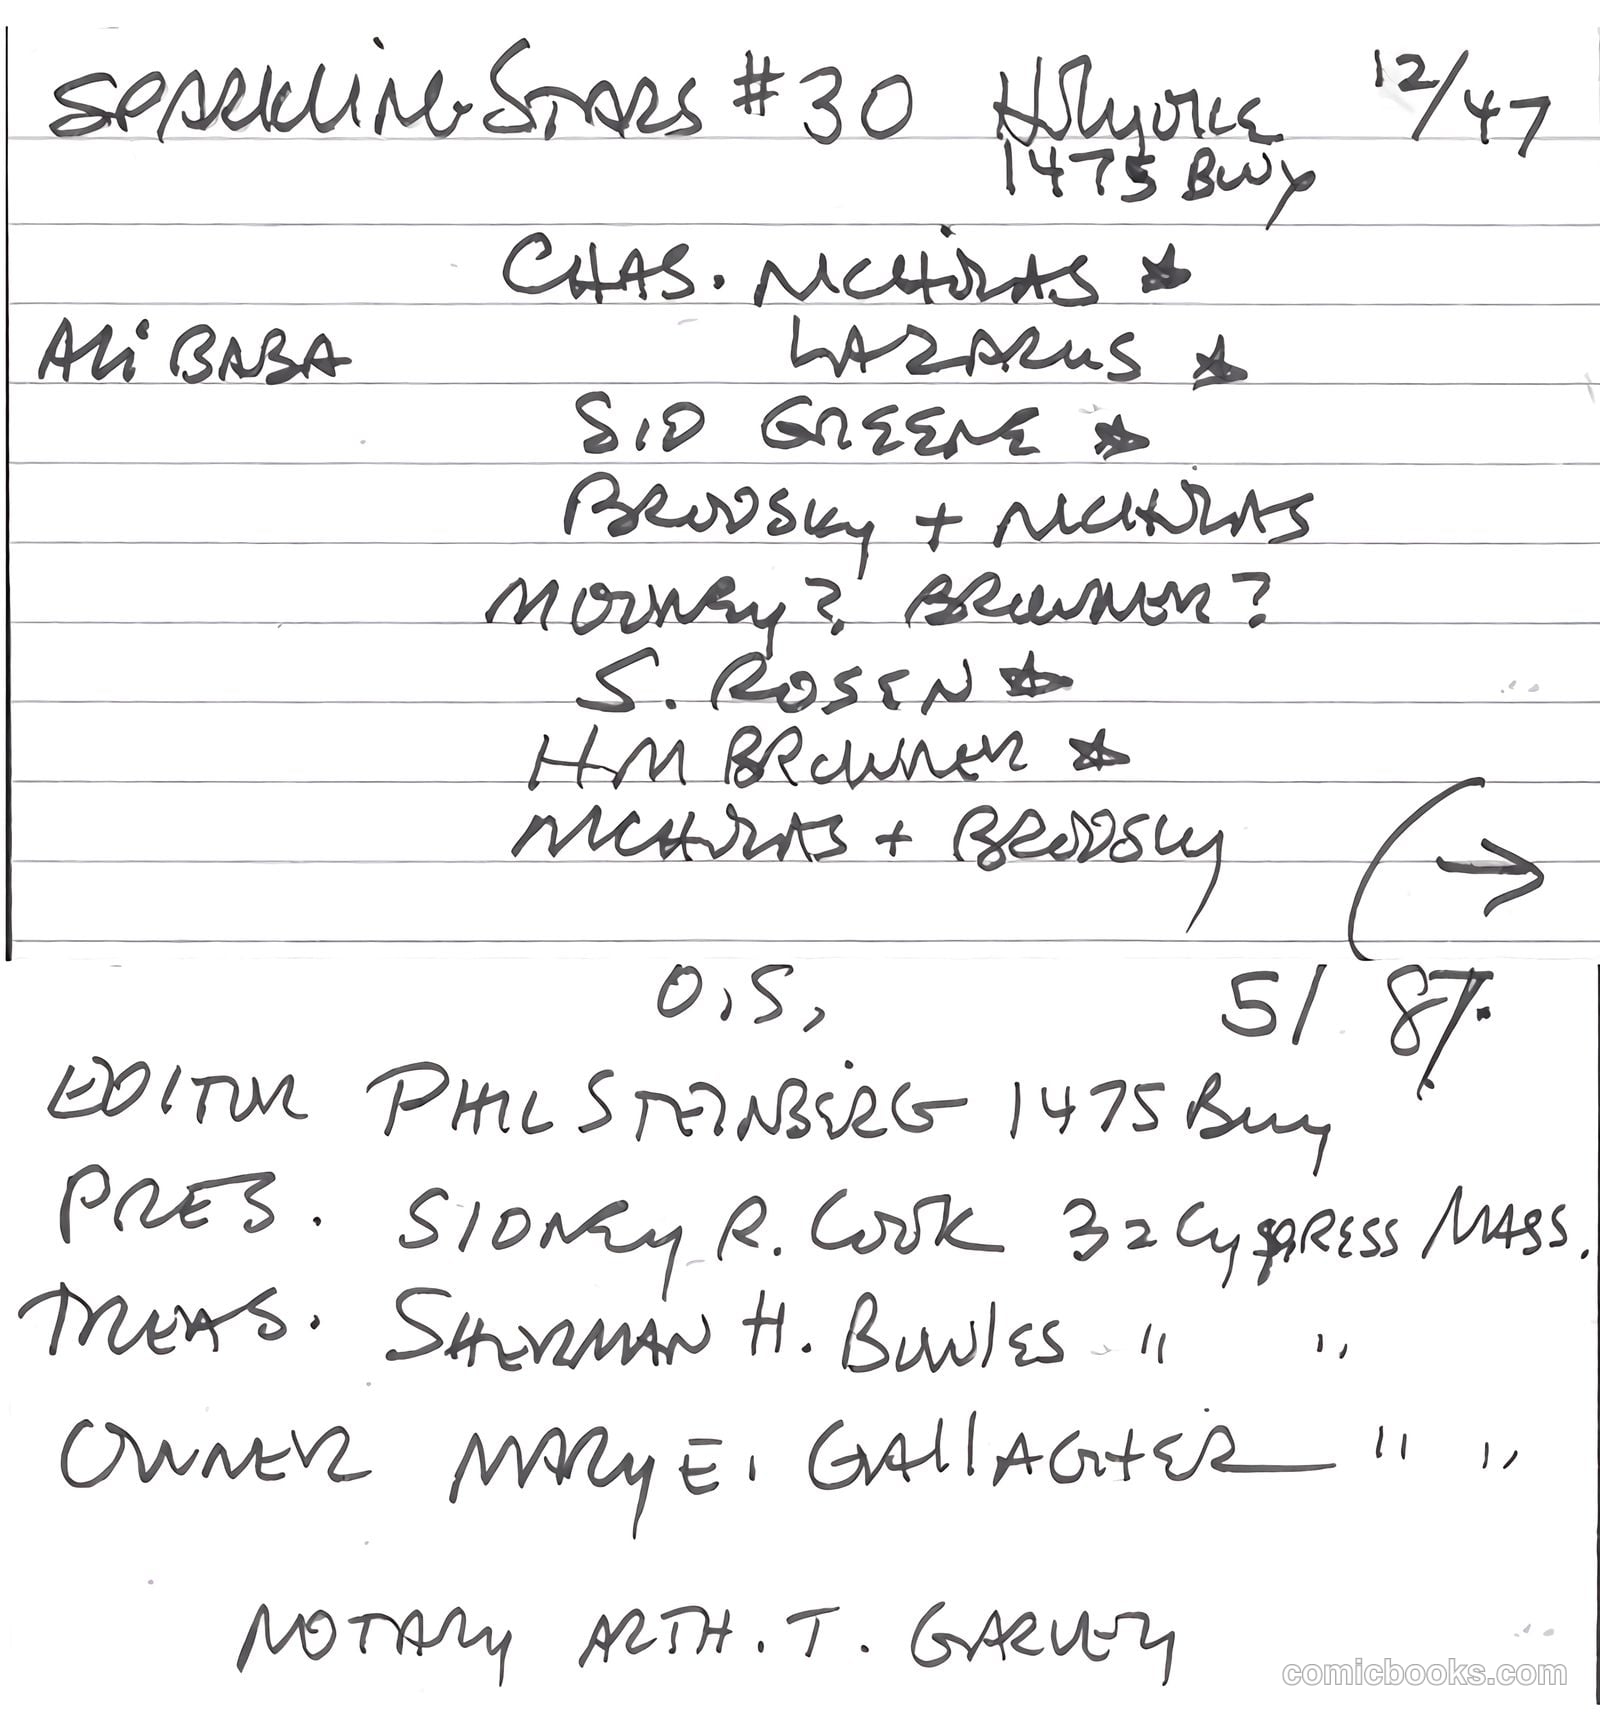 SPARKLING STARS #30 HOLYOKE 12/47
1475 BWY
CHAS. NICHOLAS ★
ALI BABA LAZARUS ★
SID GREENE ★
BRODSKY + NICHOLAS
MOONEY? BROWNER?
S. ROSEN ★
HM BROWNER ★
NICHOLAS + BRODSKY
→
O.S, 5/87.
EDITOR PHIL STEINBERG 1475 BWY
PRES. SIDNEY R. COOK 32 CYPRESS MASS.
TREAS. SHERMAN H. BOWLES " "
OWNER MARY E. GALLAGHER " "
NOTARY ARTH. T. GARVEY
comicbooks.com